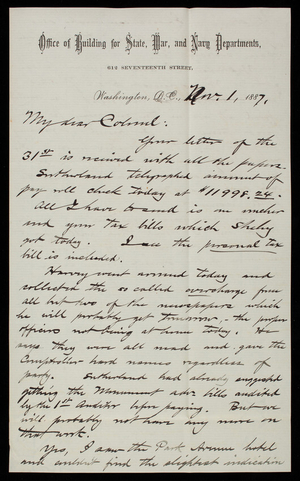 Office of Building for State, War, and Navy Departments,
613 SEVENTEENTH STREET,
Washington, D.C., Nov. 1, 1887.
My dear Colonel:
Your letter of the
31st is received with all the papers.
Sutherland telegraphed amount of
pay roll check today at $11998.24.
All I have to send is one voucher
and your tax bills which Shely
got today. I see the personal tax
bill is included.
Harvey went around today and
collected the so called overcharge from
all but two of the newspapers which
he will probably get tomorrow - the proper
officers not being at home today. He
says they were all mad and gave the
Comptroller hard names regardless of
party. Sutherland had already suggested
getting the Monument adv. bills audited
by the 1st Auditor before paying. But we
will probably not have any more on
that work.
Yes, I saw the Park Avenue hotel
and find the slightest indication